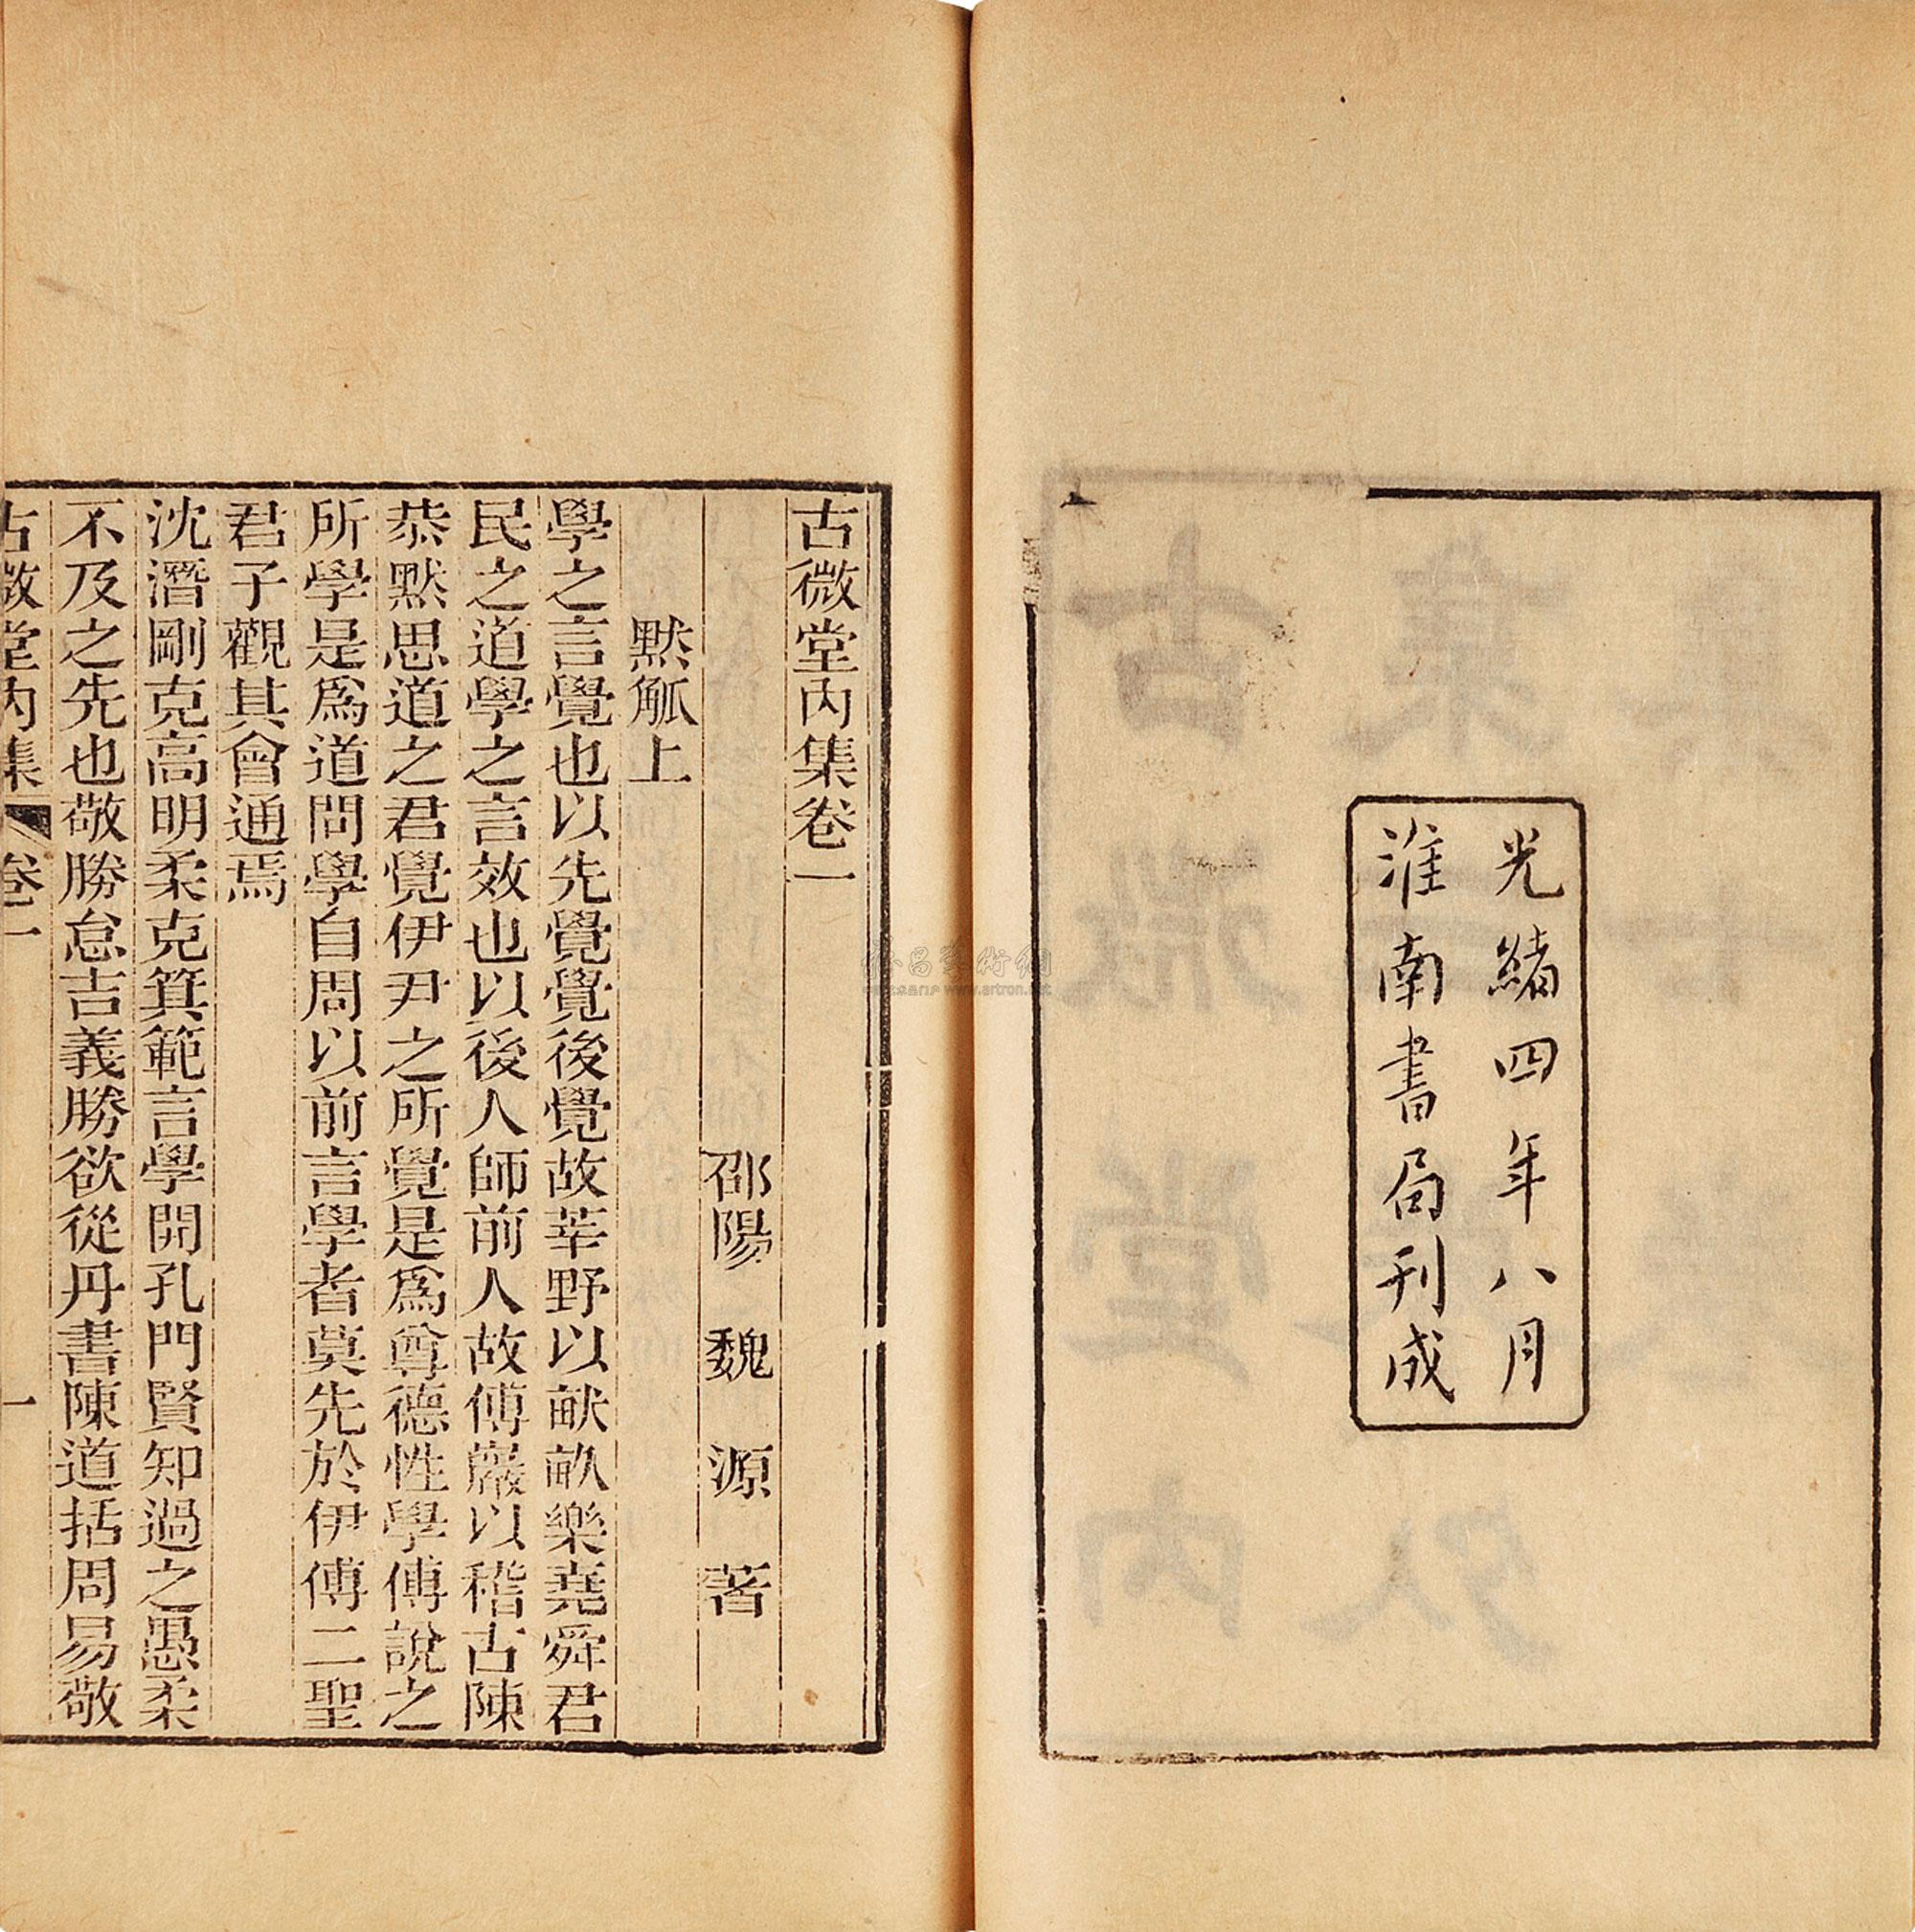 光緒四年八月
淮南書局刊成
古微堂內集卷一
邵陽 魏 源 著
默觚上
學之言覺也以先覺覺後覺故莘野以畎畝樂堯舜君
民之道學之言效也以後人師前人故傅巖以稽古陳
恭默思道之君覺伊尹之所覺是爲尊德性學傅說之
所學是爲道問學自周以前言學者莫先於伊傅二聖
君子觀其會通焉
沈潛剛克高明柔克箕範言學開孔門賢知過之愚柔
不及之先也敬勝怠吉義勝欲從丹書陳道括周易敬
古微堂內集 卷一 一
www.artron.net